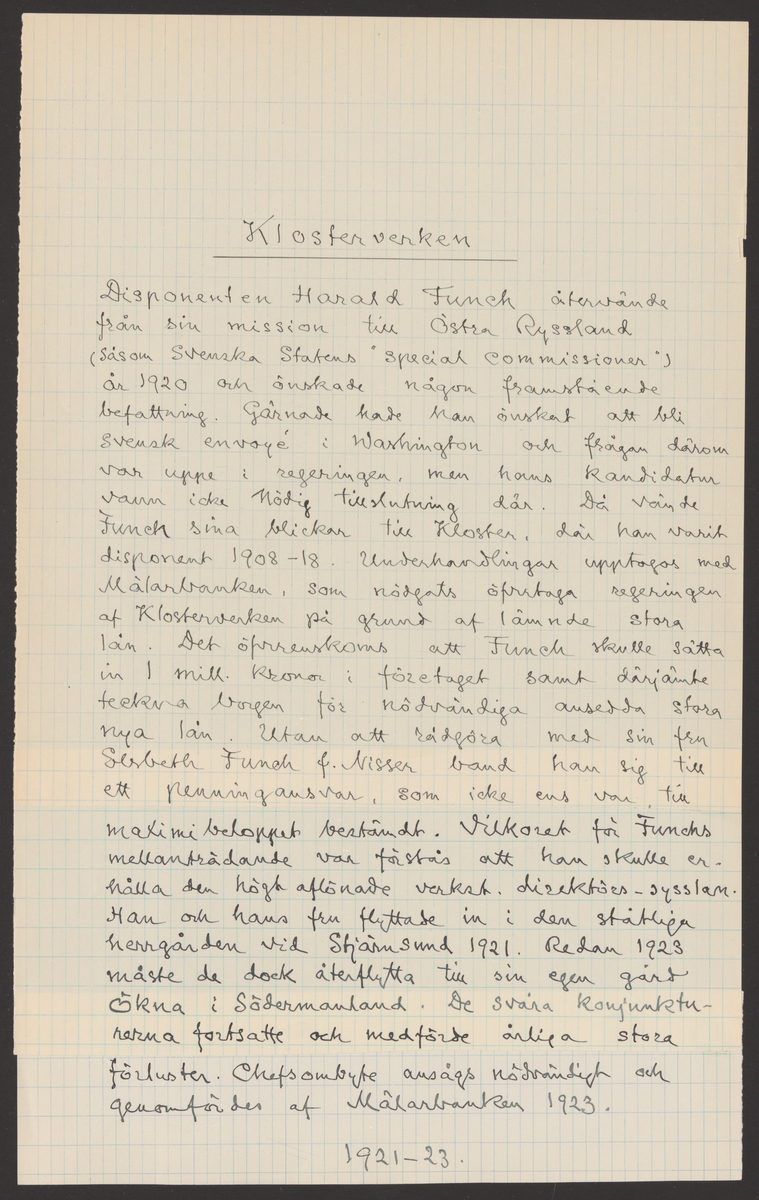 Klosterverken
Disponenten Harald Funch återvände
från sin mission till Östra Ryssland
(såsom Svenska Statens "special commissioner")
år 1920 och önskade någon framstående
befattning. Gärnade hade han önskat att bli
svensk envoyé i Washington och frågan därom
var uppe i regeringen, men hans kandidatur
vann icke nödig tillslutning där. Då vände
Funch sina blickar till Kloster, där han varit
disponent 1908-18. Underhandlingar upptogos med
Mälarbanken, som nödgats öfvertaga regeringen
af Klosterverken på grund af lämnde stora
lån. Det öfverenskoms att Funch skulle sätta
in 1 mill. kronor i företaget samt därjämte
teckna borgen för nödvändiga ansedda stora
nya lån. Utan att rådgöra med sin fru
Elsbeth Funch f. Nisser band han sig till
ett penningansvar, som icke ens var till
maximibeloppet bestämdt. Vilkoret för Funchs
mellanträdande var förstås att han skulle er-
hålla den högt aflönade verkst. direktörs-sysslan.
Han och hans fru flyttade in i den ståtliga
herrgården vid Stjärnsund 1921. Redan 1923
måste de dock återflytta till sin egen gård
Ökna i Södermanland. De svåra konjunktu-
rerna fortsatte och medförde årliga stora
förluster. Chefsombyte ansågs nödvändigt och
genomfördes af Mälarbanken 1923.
1921-23.